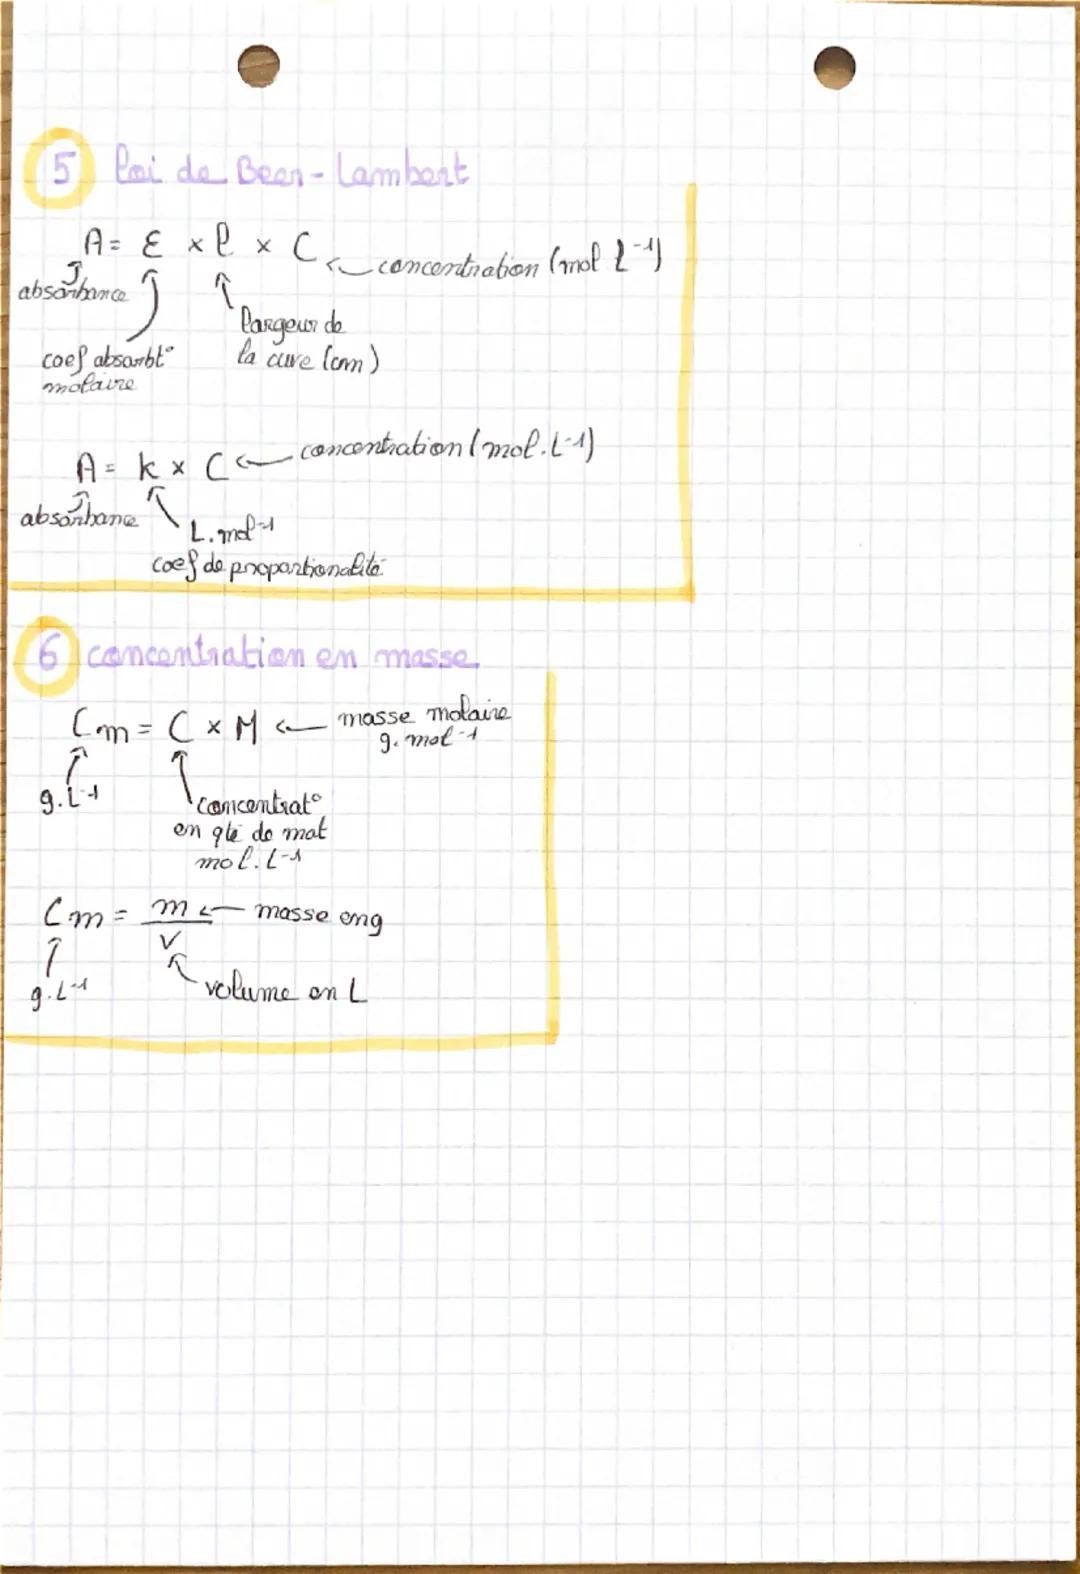 5 loi de Beer-Lambert
A = ε × l × C ← concentration (mol L⁻¹)
absorbance
largeur de
coef absorbt° la cuve (cm)
molaire
A = k × C ← concentration (mol.L⁻¹)
absorbance
L.mol⁻¹
coef de proportionalité
6 concentration en masse
Cm = C × M ← masse molaire
g.mol⁻¹
g.L⁻¹
concentrat°
en qté de mat
mol.L⁻¹
Cm = m ← masse en g
V
g.L⁻¹ volume en L